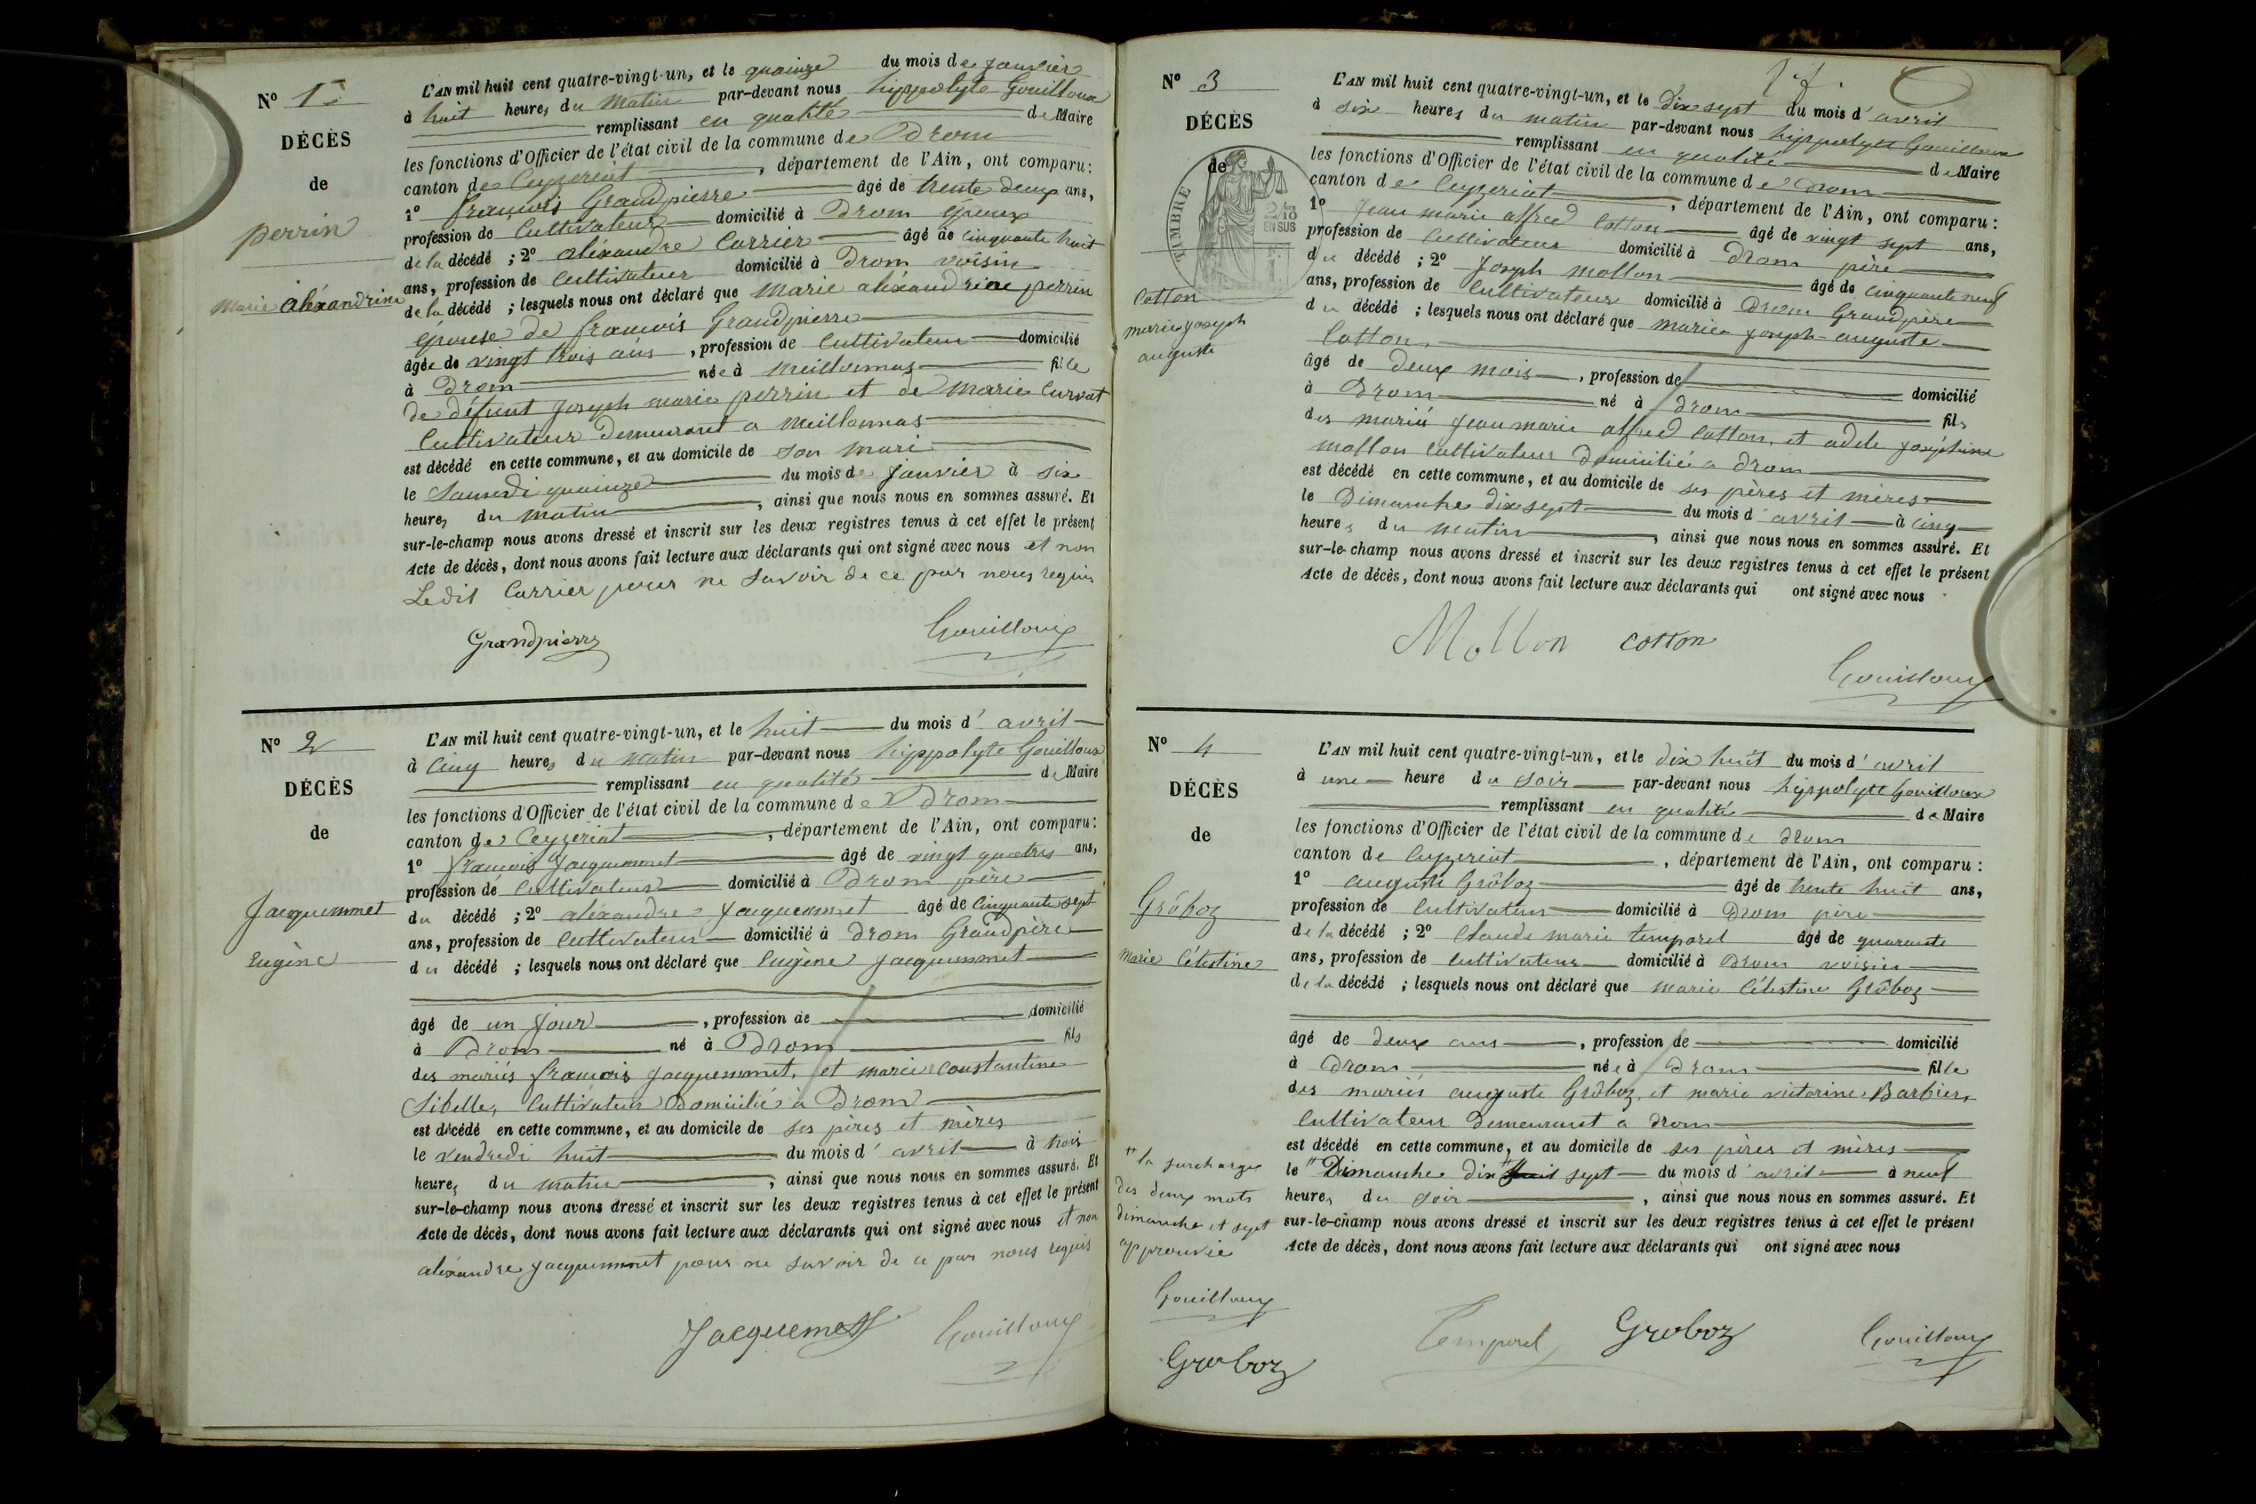 N° 1er
DÉCÈS
de
perrin
Marie aléxandrine
L'AN mil huit cent quatre-vingt-un, et le quainze du mois de janvier
à huit heures du Matin par-devant nous hyppolyte Gouilloux
remplissant en qualité de Maire
les fonctions d'Officier de l'état civil de la commune de Drom
canton de Ceyzeriat, département de l'Ain, ont comparu:
1° françois Grandpierre âgé de trente deux ans,
profession de Cultivateur domicilié à Drom époux
de la décédé ; 2° aléxandre Carrier âgé de cinquante huit
ans, profession de Cultivateur domicilié à Drom voisin
de la décédé ; lesquels nous ont déclaré que Marie aléxandrine perrin
épouse de françois Grandpierre
âgée de vingt trois ans, profession de Cultivateur domicilié
à Drom née à Meillonnas fille
de défunt Joseph marie perrin et de Marie Curvat
Cultivateur Demeurant a Meillonnas
est décédé en cette commune, et au domicile de son mari
le Samedi quainze du mois de Janvier à six
heures du Matin, ainsi que nous nous en sommes assuré. Et
sur-le-champ nous avons dressé et inscrit sur les deux registres tenus à cet effet le présent
Acte de décès, dont nous avons fait lecture aux déclarants qui ont signé avec nous et non
Ledit Carrier pour ne savoir de ce par nous requis
Grandpierre Gouilloux
N° 2
DÉCÈS
de
Jacquemmet
Eugène
L'AN mil huit cent quatre-vingt-un, et le huit du mois d' avril
à Cinq heures du Matin par-devant nous hippolyte Gouilloux
remplissant en qualité de Maire
les fonctions d'Officier de l'état civil de la commune de Drom
canton de Ceyzeriat, département de l'Ain, ont comparu:
1° françois Jacquemmet âgé de vingt quatre ans,
profession de Cultivateur domicilié à Drom père
du décédé ; 2° aléxandre Jacquemmet âgé de Cinquante sept
ans, profession de Cultivateur domicilié à Drom Grandpère
du décédé ; lesquels nous ont déclaré que Eugène Jacquemmet
âgé de un Jour, profession de domicilié
à Drom né à Drom fils
des mariés françois Jacquemmet, et marie constantine
Sibelle, Cultivateur Domicilié a Drom
est décédé en cette commune, et au domicile de ses pères et mères
le vendredi huit du mois d' avril à trois
heures du matin, ainsi que nous nous en sommes assuré. Et
sur-le-champ nous avons dressé et inscrit sur les deux registres tenus à cet effet le présent
Acte de décès, dont nous avons fait lecture aux déclarants qui ont signé avec nous et non
aléxandre Jacquemmet pour ne savoir de ce par nous requis
Jacquemet Gouilloux
N° 3
DÉCÈS
de
TIMBRE
2/10
EN SUS
Cotton
marie joseph
auguste
L'AN mil huit cent quatre-vingt-un, et le Dix sept du mois d' avril
à six heures du matin par-devant nous hippolyte Gouilloux
remplissant en qualité de Maire
les fonctions d'Officier de l'état civil de la commune de Drom
canton de Ceyzeriat, département de l'Ain, ont comparu:
1° Jean marie alfred Cotton âgé de vingt sept ans,
profession de Cultivateur domicilié à Drom père
du décédé ; 2° Joseph mollon âgé de cinquante neuf
ans, profession de Cultivateur domicilié à Drom Grandpère
du décédé ; lesquels nous ont déclaré que marie joseph-auguste
Cotton,
âgé de Deux mois, profession de domicilié
à Drom né à Drom fils
des mariés Jean marie alfred Cotton, et adele joséphine
mollon Cultivateur Domicilié a Drom
est décédé en cette commune, et au domicile de ses pères et mères
le Dimanche dix sept du mois d' avril à cinq
heures du matin, ainsi que nous nous en sommes assuré. Et
sur-le-champ nous avons dressé et inscrit sur les deux registres tenus à cet effet le présent
Acte de décès, dont nous avons fait lecture aux déclarants qui ont signé avec nous
Mollon cotton
Gouilloux
N° 4
DÉCÈS
de
Grôboz
Marie Célestine
L'AN mil huit cent quatre-vingt-un, et le dix huit du mois d' avril
à une heure du soir par-devant nous hyppolyte Gouilloux
remplissant en qualité de Maire
les fonctions d'Officier de l'état civil de la commune de Drom
canton de Ceyzeriat, département de l'Ain, ont comparu:
1° auguste Grôboz âgé de trente huit ans,
profession de Cultivateur domicilié à Drom père
de la décédé ; 2° Claude marie temporel âgé de quarante
ans, profession de Cultivateur domicilié à Drom voisin
de la décédé ; lesquels nous ont déclaré que marie Célestine Grôboz
âgé de deux ans, profession de domicilié
à Drom née à Drom fille
des mariés auguste Grôboz, et marie victorine Barbier,
Cultivateur Demeurant a Drom
est décédé en cette commune, et au domicile de ses pères et mères
le " Dimanche dix " huit sept du mois d' avril à neuf
heures du soir, ainsi que nous nous en sommes assuré. Et
sur-le-champ nous avons dressé et inscrit sur les deux registres tenus à cet effet le présent
Acte de décès, dont nous avons fait lecture aux déclarants qui ont signé avec nous
" la surcharge
des deux mots
dimanche et sept
approuvée
Gouilloux
Groboz
Temporel Groboz Gouilloux